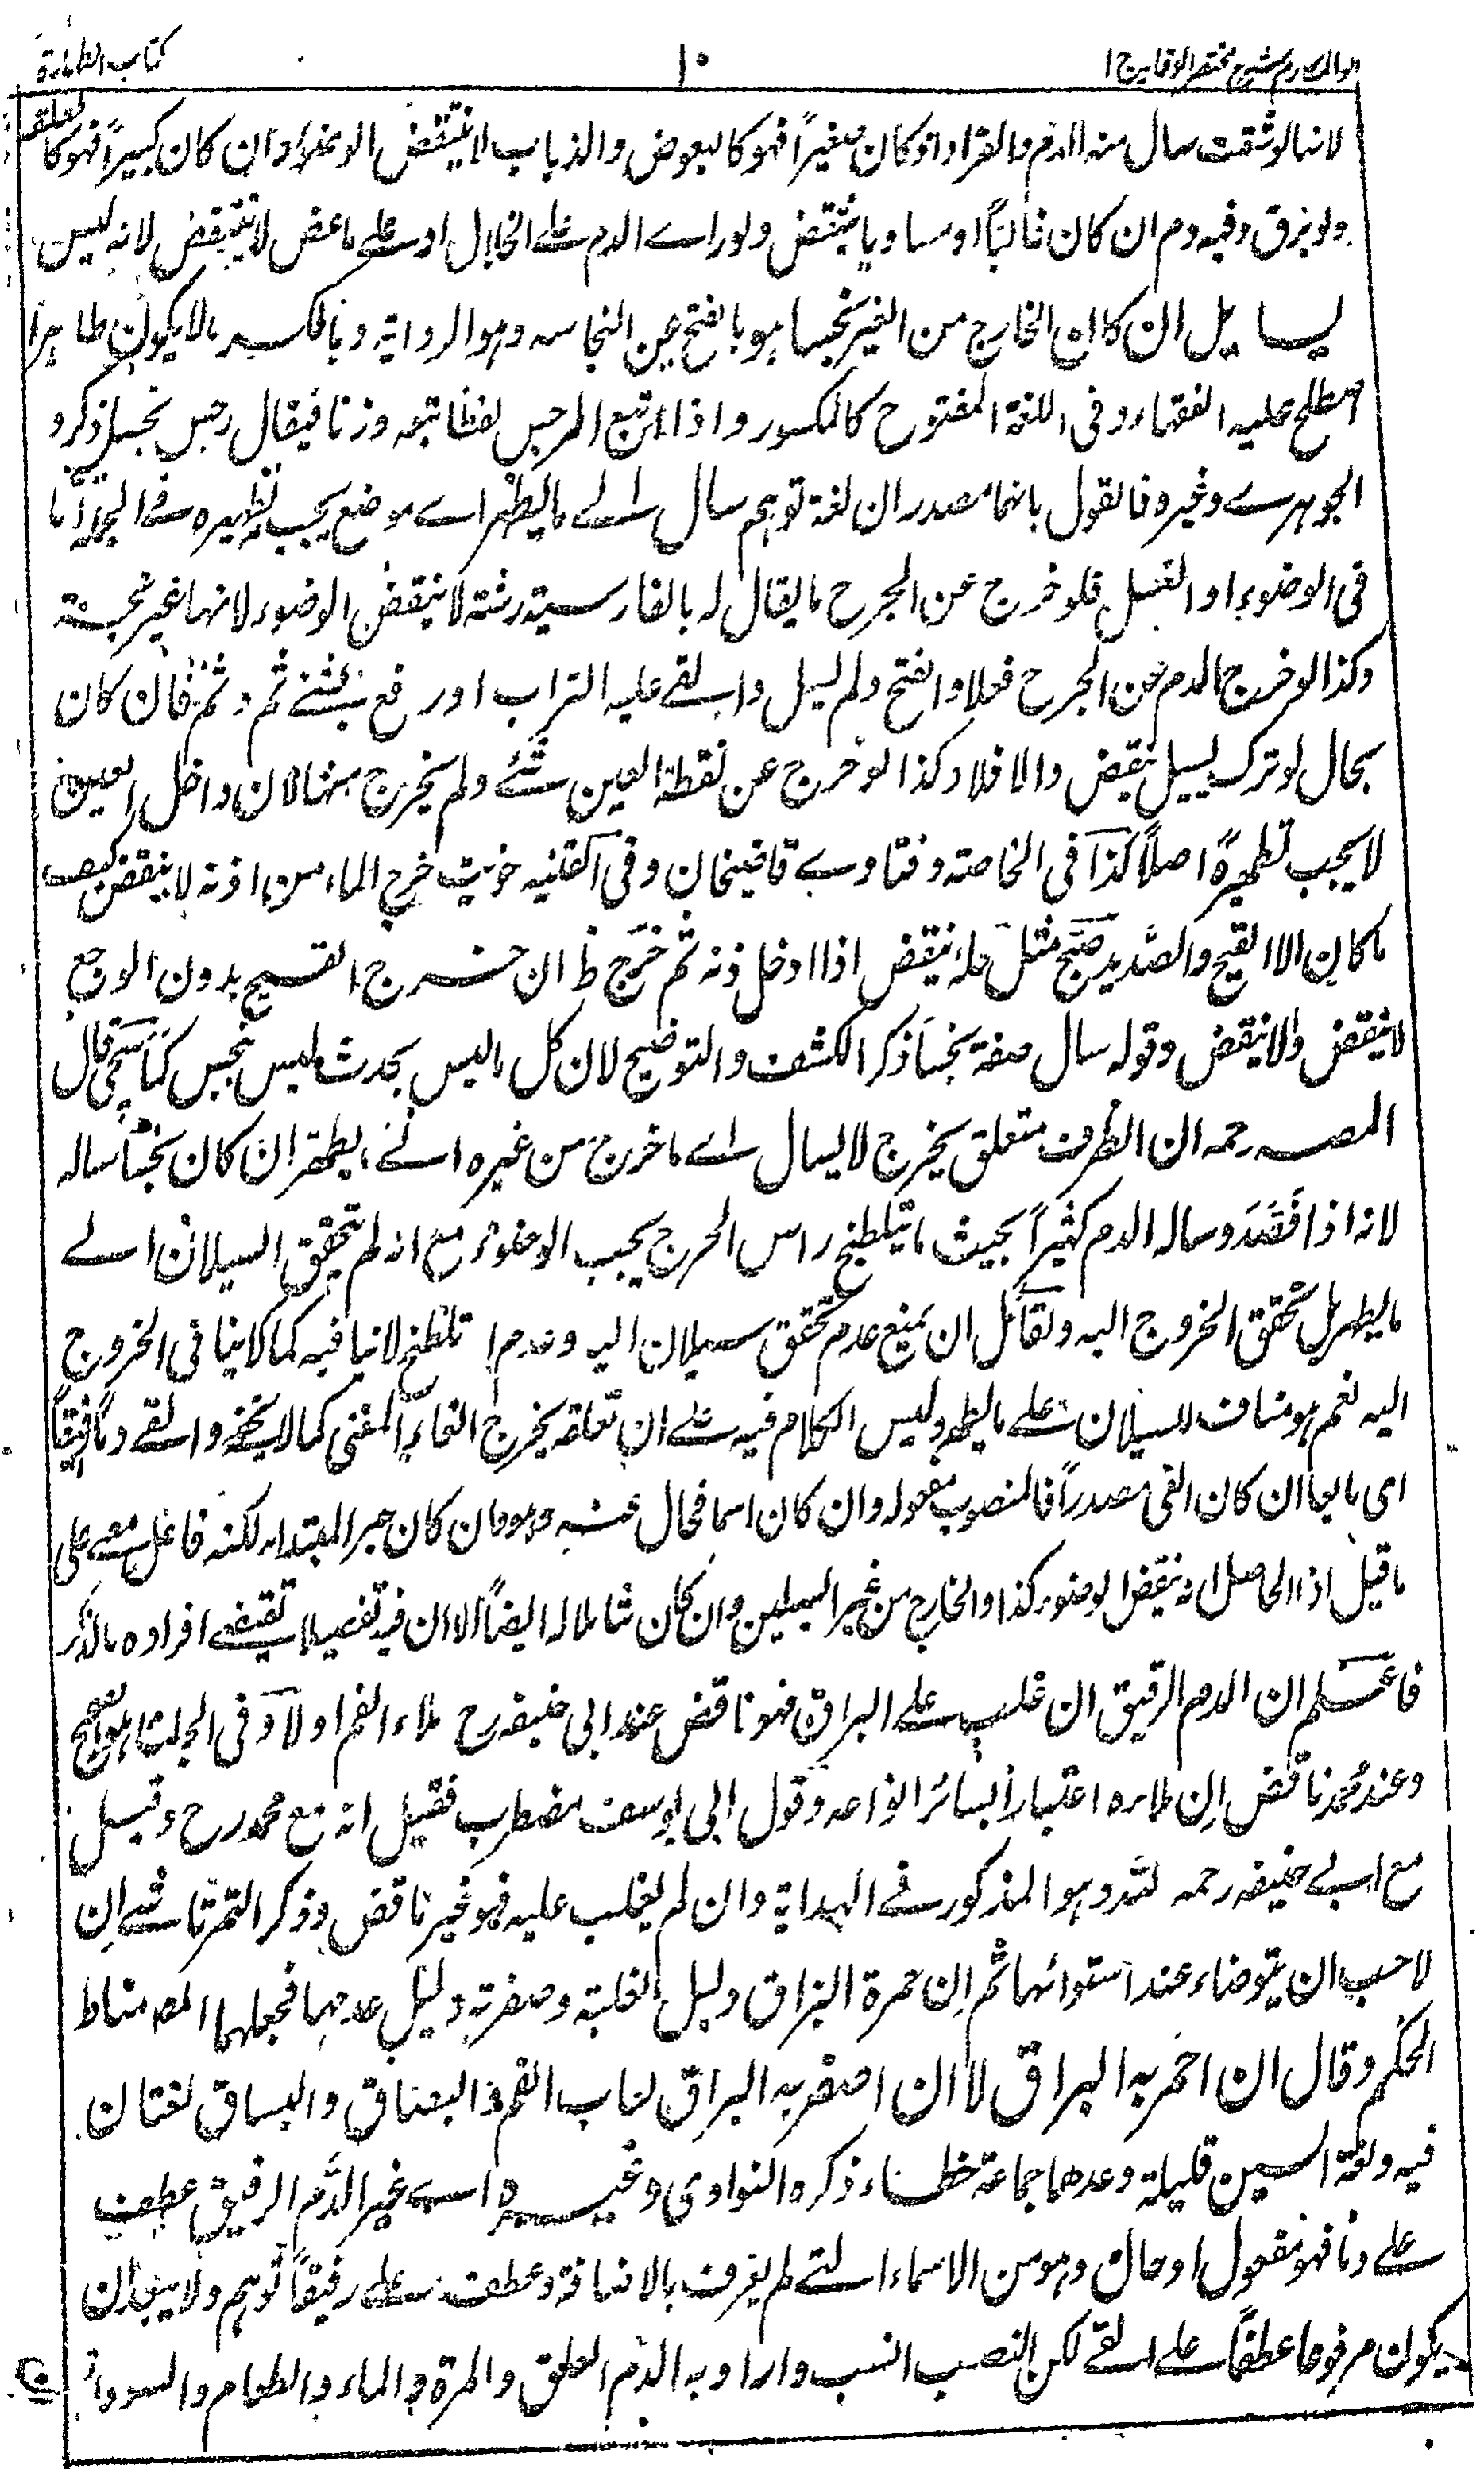 ابوالمکارم شرح مختصر الوقایہ ج ا
١٠
کتاب الطهارة
لانها لو شقت سال منه الدم والقراد ان کان صغیراً فهو کالبعوض والذباب لا ینتقض الوضوء وان کان کبیراً فهو کالعلقة
ولو بزق وفیه دم ان کان غالباً او مساویا ینتقض ولو رای الدم علی الخلال او علی ما عض لا ینتقض لانه لیس
بسایل ان کان الخارج من الغیر نجسا هو بالفتح عین النجاسه وهو الروایة وبالکسر ما لا یکون طاهرا
اصطلح علیه الفقهاء وفی اللغة المفتوح کالمکسور واذا اتبع الرجس لفظا تبعه وزنا فیقال رجس نجس ذکره
الجوهری وغیره فالقول بانهما مصدران لغة توهم سال الی ما یطهر ای موضع یجب تطهیره فی الجملة اما
فی الوضوء او الغسل فلو خرج عن الجرح ما یقال له بالفارسیة رشته لا ینتقض الوضوء لانها غیر نجسة
وکذا لو خرج الدم عن الجرح فعلا وانفتح ولم یسل والقی علیه التراب او رفع بشئ ثم وثم فان کان
بحال لو ترک یسیل نقض والا فلا وکذا لو خرج عن نقطة العین شئ ولم یخرج منها لان داخل العین
لا یجب تطهیره اصلاً کذا فی الخاصة وفتاوی قاضیخان وفی القنیه خویت خرج الماء من اذنه لا ینقض کیف
ما کان الا القیح والصدید صح مثله ینقض اذا ادخل اذنه ثم خرج ظ ان خرج القیح بدون الوجع
لا ینقض والا ینقض وقوله سال صفة نجساً ذکر الکشف والتوضیح لان کل ما لیس بحدث لیس بنجس کما سیجئ قال
المصـ رحمه ان الظرف متعلق بخرج لا بسال ای ما خرج من غیره الی ما یطهر ان کان نجساً ساله
لانه اذا فصد وساله الدم کثیراً بحیث ما یتلطخ راس الجرح یجب الوضوء مع انه لم یتحقق السیلان الی
ما یطهر بل تحقق الخروج الیه ولقائل ان یمنع عدم تحقق سیلان الیه وعدم التلطخ لا ینافیه کما لا ینافی الخروج
الیه نعم هو مناف للسیلان علی ما یطهر ولیس الکلام فیه علی ان تعلقه بخرج الغاء المعنی کما لا یخفی والقی دما رقیقاً
ای مایعا ان کان القی مصدراً فالمنصوب معموله وان کان اسما فحال عنه وهو وان کان خبر المبتداء لکنه فاعل معنی علی
ما قیل اذا الحاصل انه ینقض الوضوء کذا والخارج من غیر السبیلین وان کان شاملا له ایضاً الا ان فیه تفصیلا یقتضی افراده بالذکر
فاعلم ان الدم الرقیق ان غلب علی البزاق فهو ناقض عند ابی حنیفه رح ملاء الفم او لا وفی الجلة انه هو الصحیح
وعند محمد ناقض ان ملاءه اعتباراً بسائر انواعه وقول ابی یوسف مضطرب فقیل انه مع محمد رح وقیل
مع ابی حنیفه رحمه الله وهو المذکور فی الهدایة وان لم یغلب علیه فهو غیر ناقض وذکر التمرتاشی ان
الاحب ان یتوضاء عند استوائهما ثم ان حمرة البزاق دلیل الغلبة وصفرته دلیل عدمها فجعلهما المصـ مناط
الحکم وقال ان احمر به البزاق لا ان اصفر به البزاق لعاب الفم والبصاق والبساق لغتان
فیه ولغة السین قلیلة وعدها جماعة خطاء ذکره النواوی وغیره او غیره ای غیر الدم الرقیق عطف
علی دما فهو مفعول او حال وهو من الاسماء التی لم یعرف بالاضافة وعطفه علی رقیقاً توهم ولا یبعد ان
یکون مرفوعا عطفاً علی القی لکن النصب انسب واراد به الدم العلق والمرة والماء والطعام والسوداء